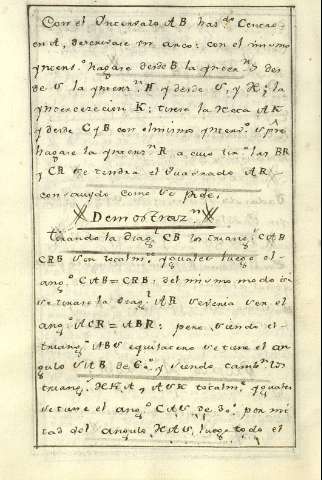 Con el Yntervalo AB has.do Centro
en A, descrivase un arco: con el mismo
hagase desde B la
de V la H y desde V, y H; la
K; tirese la Recta AK
y desde C y B con el mismo
hagase la R, a cuio las BR
y CR se tendra el Quadrado AR
construydo como se pide.
Demostraz.n
tirando la diag.l CB los triang.s CAB
CRB son totalm.te yguales luego el
ang.o CAB = CRB; del mismo modo
se tirare la diag.l AR
ang.o ACR = ABR; pero siendo el
triang.o ABV equilatero se tiene el an
gulo VAB de 60.o y siendo tamb.n los
triang.s HKA, y AVK totalm.te yguales
se tiene el ang.o CAV de 30.o por mi
tad del angulo HAV, luego todo el